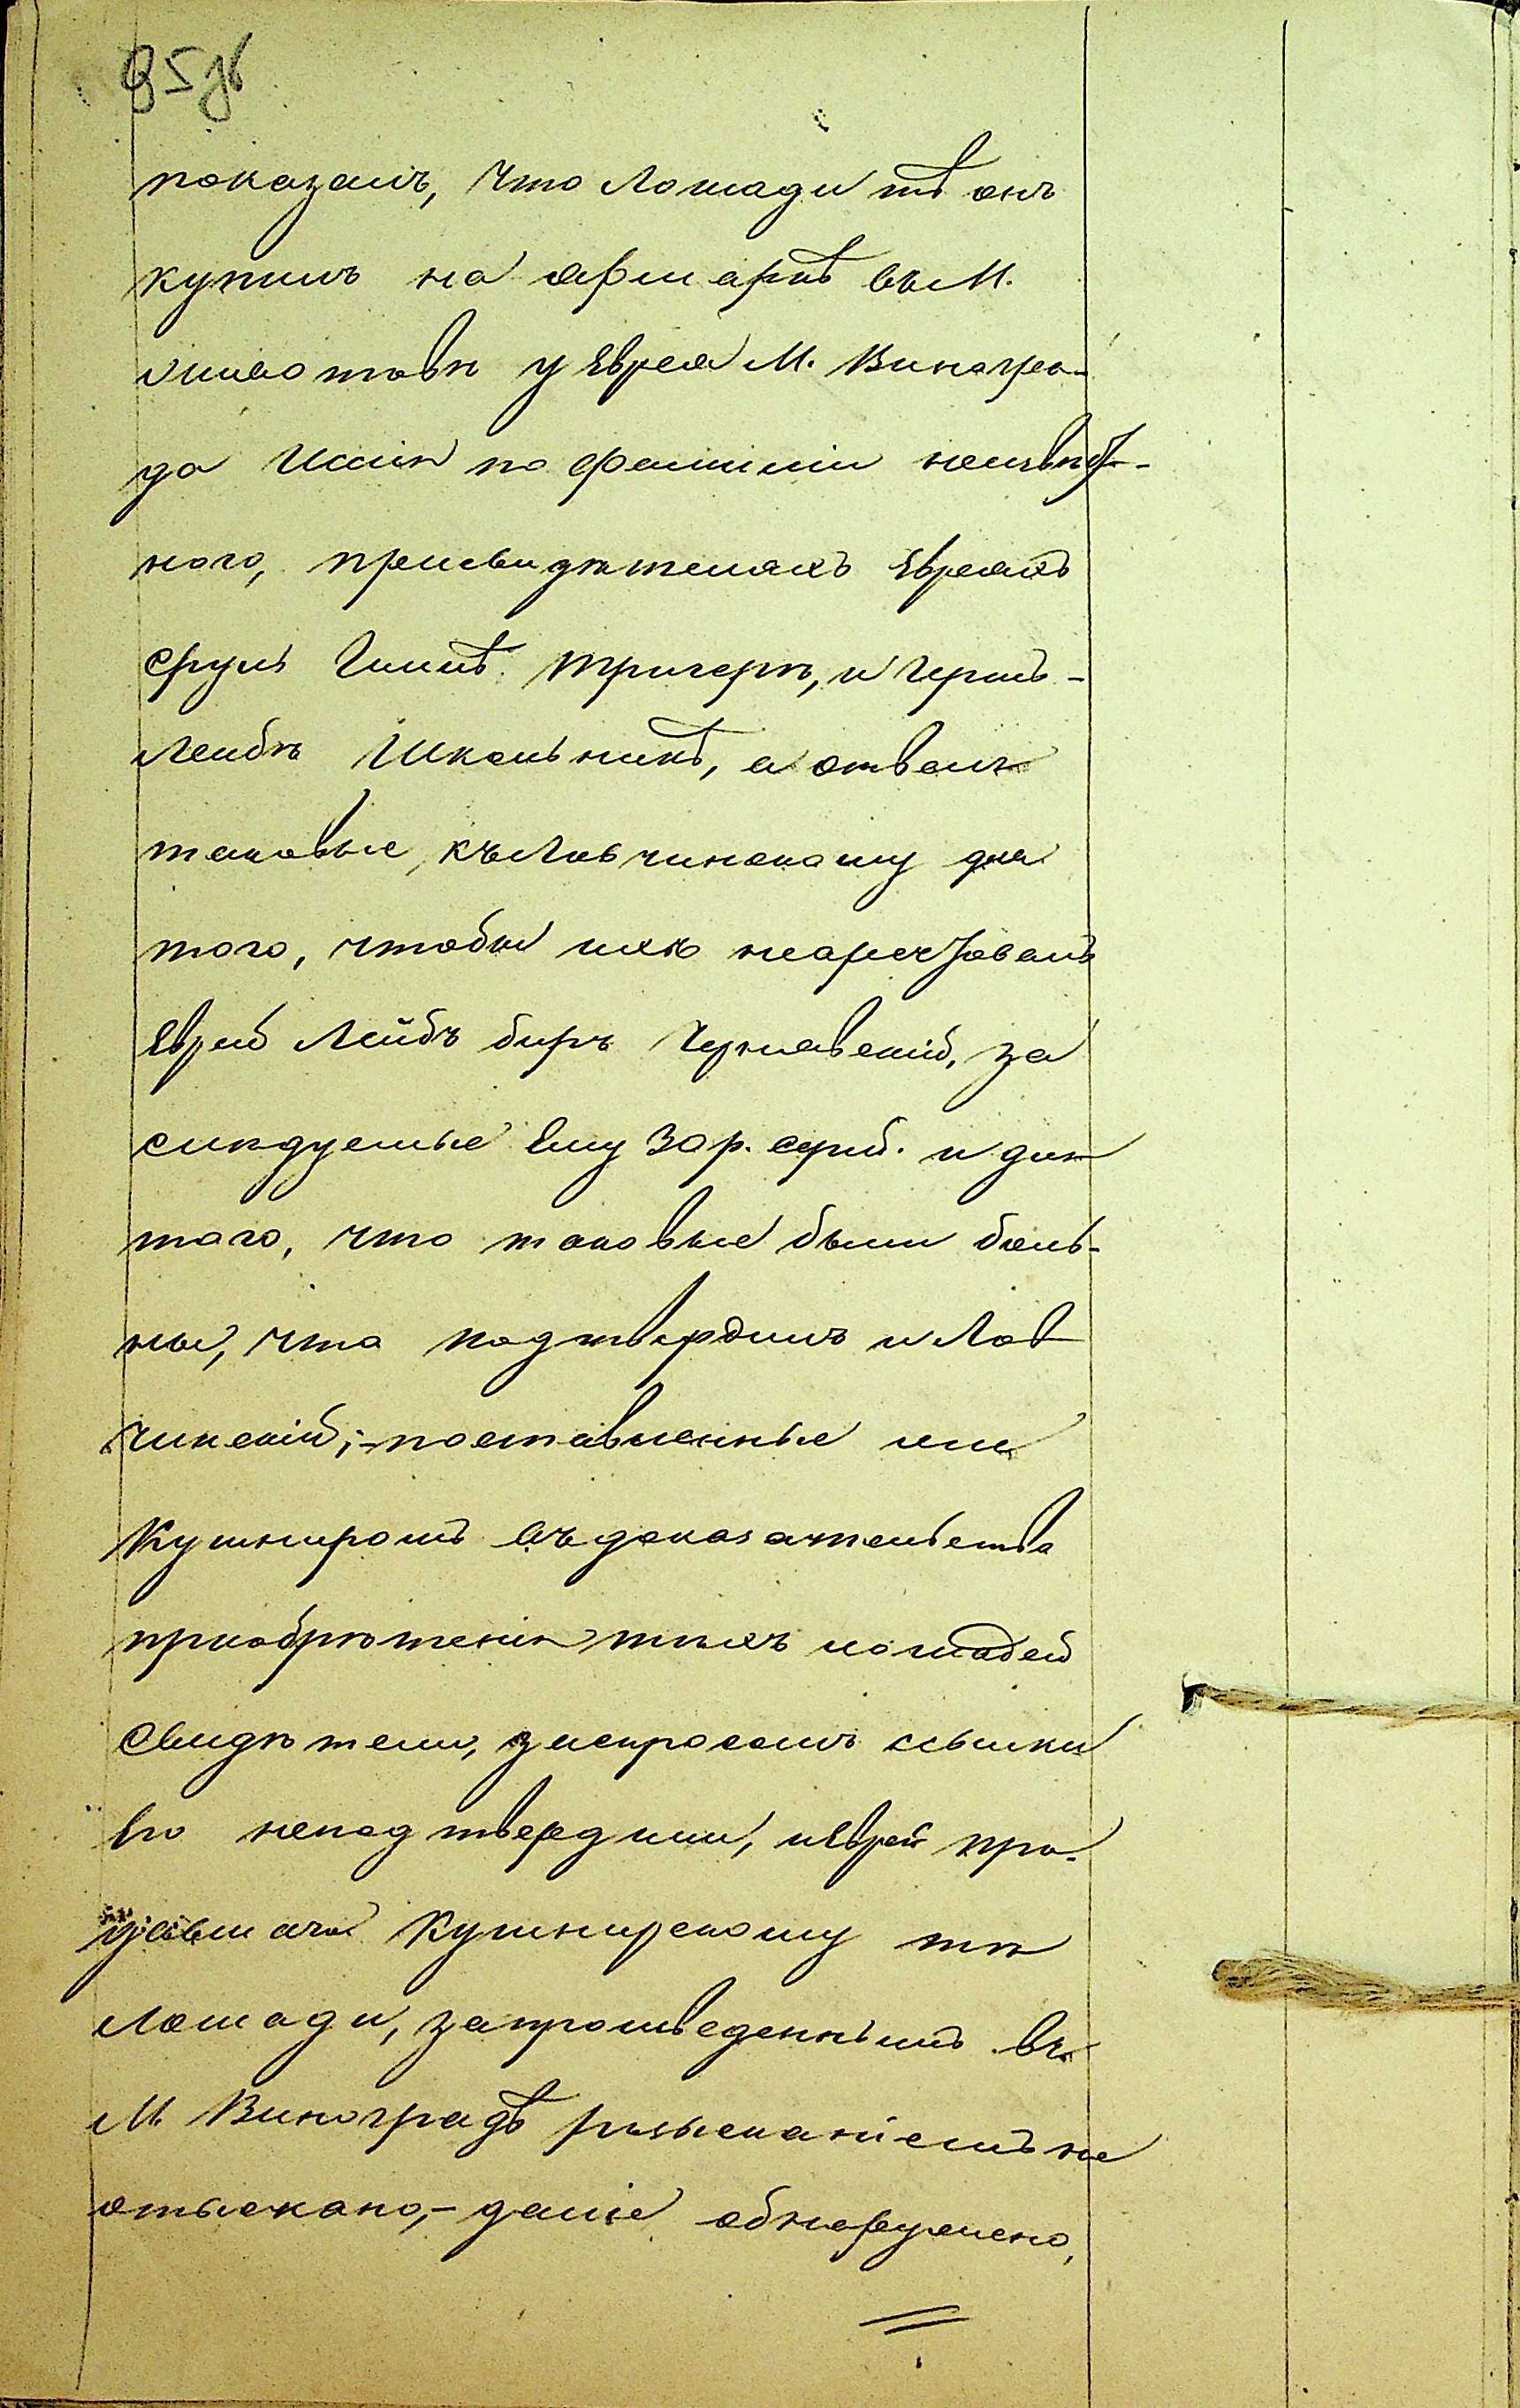 95 об
показалъ, что лошади тѣ онъ
купилъ на ярмаркѣ въ М.
у Еврея М. Виногра-
да по фамиліи неизвѣст-
ного, при свидѣтеляхъ Евреяхъ
Срулѣ Тригерѣ, и Гершъ-
Лейбѣ Школьникѣ, а отвелъ
таковые, къ Ловчинскому для
того, чтобы ихъ неарестовалъ
Еврей Лейбъ Беръ Чернявскій, за
слѣдуемые ему 30 р. сереб. и для
того, что таковые были боль-
ны, что подтвердилъ и Лов
чинскій; – поставленные имъ
Кушниромъ въ доказательства
приобрѣтенія тѣхъ лошадей
свидѣтели, за спросомъ ссылки
его неподтвердили, и Еврей про-
давшаго Кушнирскому тѣ
лошади, за произведеннымъ въ
М. Виноградѣ розысканіемъ не
отыскано, – далѣе обнаружено,